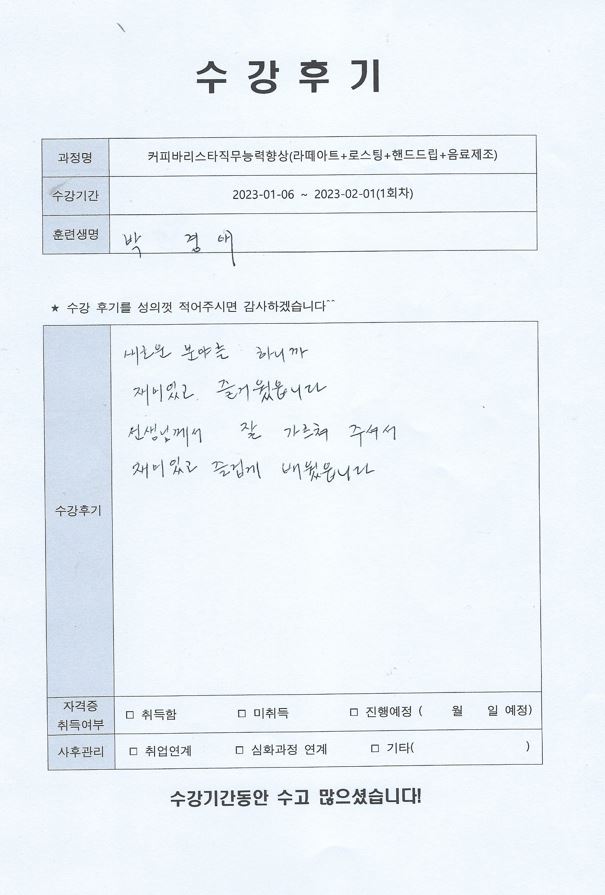 수 강 후 기
과정명 커피바리스타직무능력향상(라떼아트+로스팅+핸드드립+음료제조)
수강기간 2023-01-06 ~ 2023-02-01(1회차)
훈련생명 박 경 애
★ 수강 후기를 성의껏 적어주시면 감사하겠습니다^^
새로운 분야를 하니까
재미있고 즐거웠읍니다
선생님께서 잘 가르쳐 주셔서
재미있고 즐겁게 배웠읍니다
수강후기
자격증
취득여부 □ 취득함 □ 미취득 □ 진행예정 ( 월 일 예정)
사후관리 □ 취업연계 □ 심화과정 연계 □ 기타( )
수강기간동안 수고 많으셨습니다!